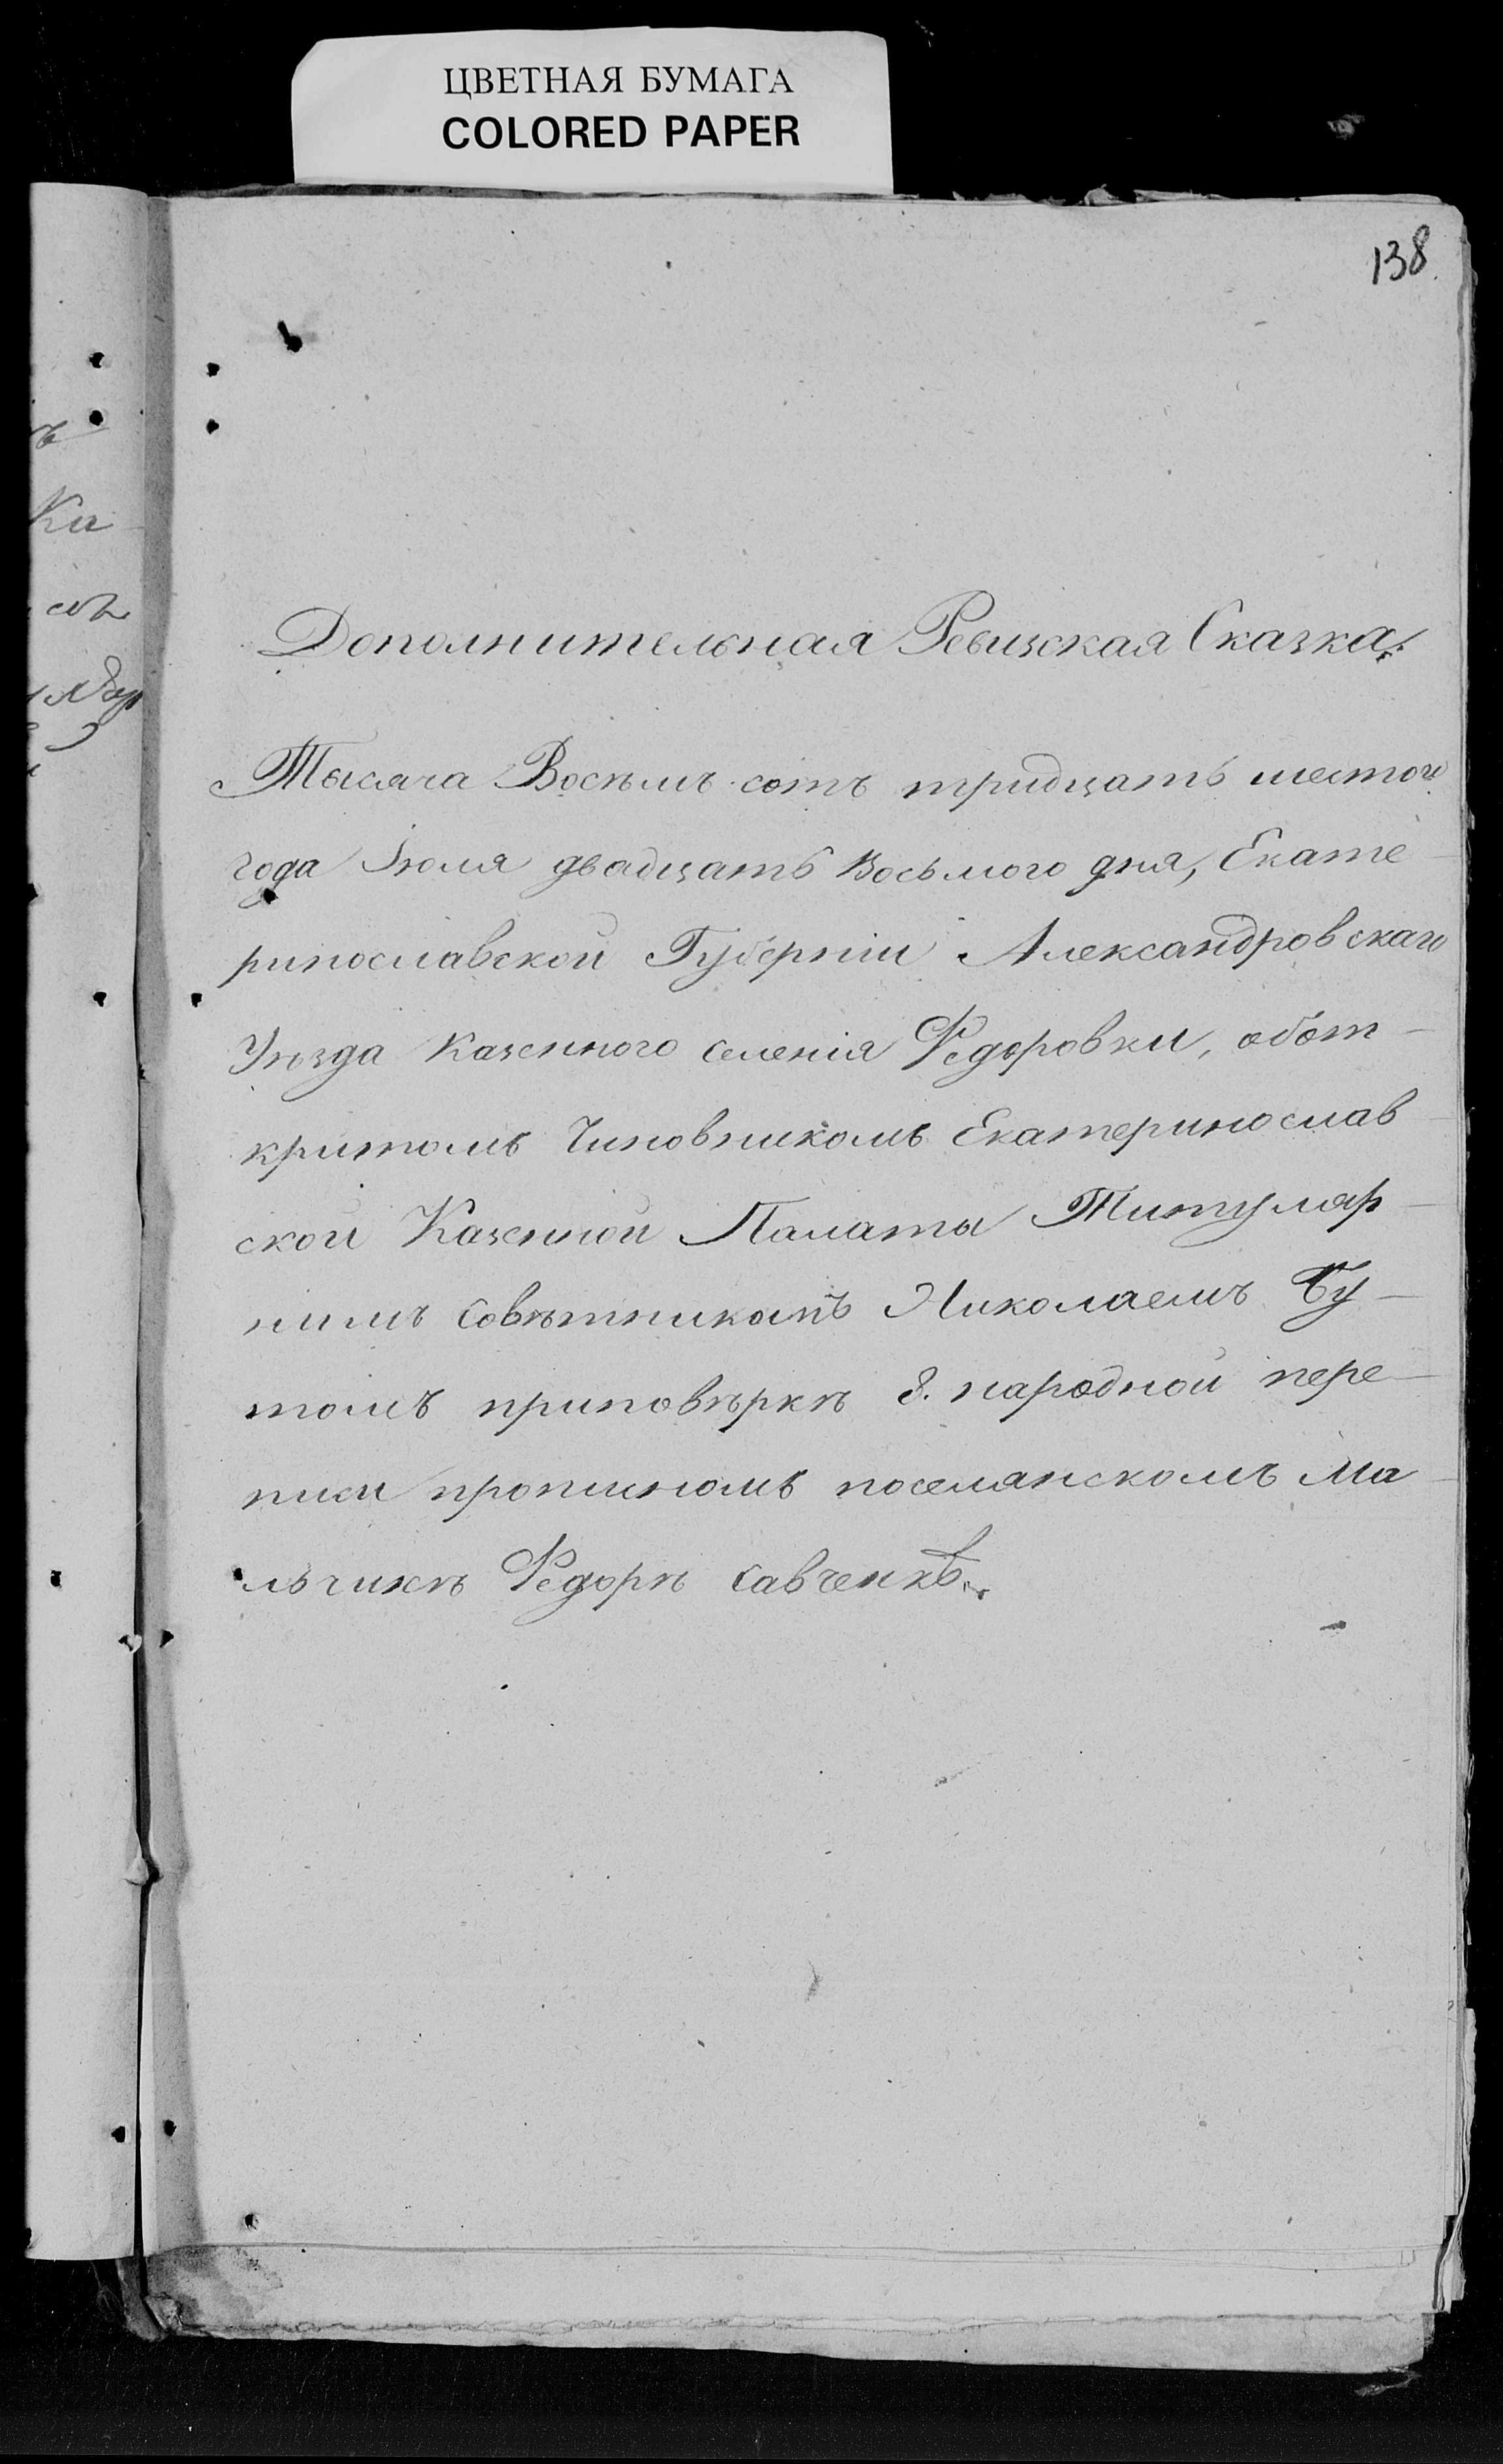 ЦВЕТНАЯ БУМАГА
COLORED PAPER
138
Дополнительная Ревизская Сказка.
Тысяча Восемъ сотъ тридцать шестого
года Іюля двадцать Восьмого дня, Екате
ринославской Губерніи Александровскаго
Уѣзда казенного селенія Федоровки, обот
критомъ Чиновникомъ Екатеринослав
ской Казенной Палаты Титуляр
нимъ совѣтникомъ Николаемъ Бу
томъ приповѣркѣ 8. народной пере
писи прописномъ поселянскомъ Ма
льчикѣ Федорѣ Савченкѣ.